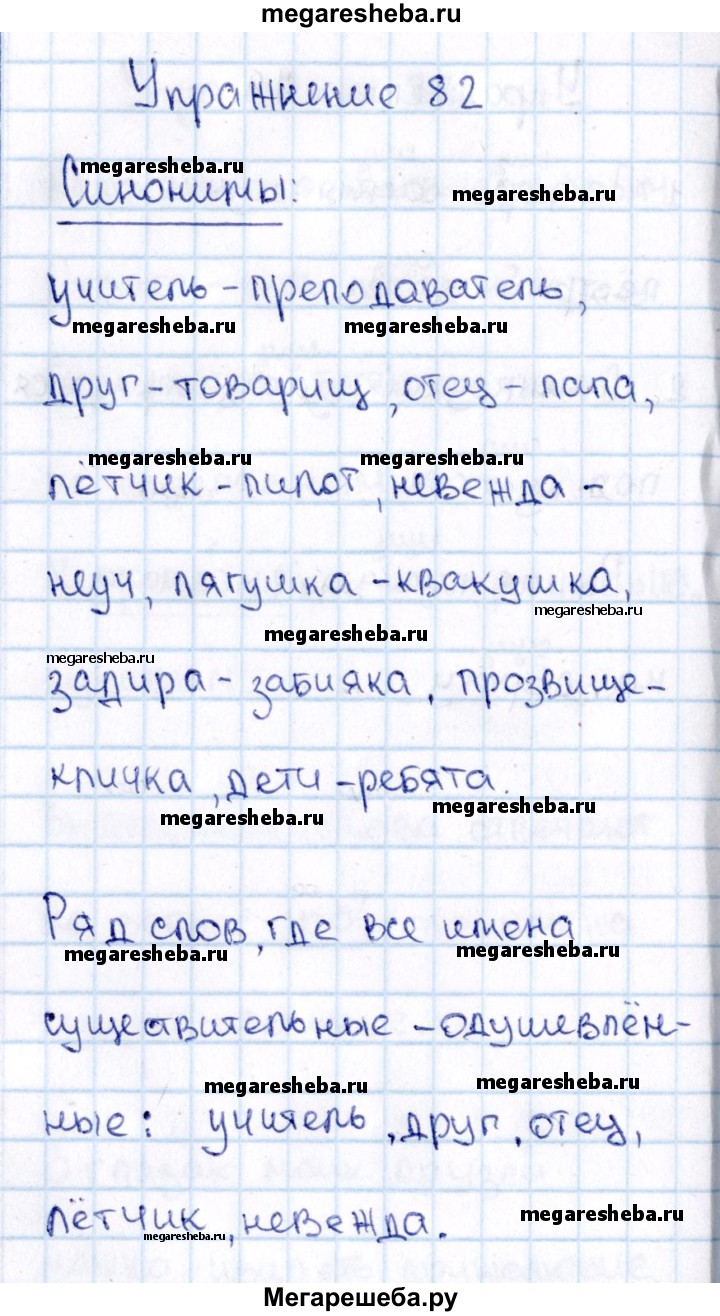 megaresheba.ru
Упражнение 82
megaresheba.ru
Синонимы:
megaresheba.ru
учитель - преподаватель,
megaresheba.ru megaresheba.ru
друг - товарищ, отец - папа,
megaresheba.ru megaresheba.ru
лётчик - пилот, невежда -
неуч, лягушка - квакушка,
megaresheba.ru
megaresheba.ru
megaresheba.ru
задира - забияка, прозвище -
кличка, дети - ребята.
megaresheba.ru megaresheba.ru
Ряд слов, где все имена
megaresheba.ru megaresheba.ru
существительные - одушевлён-
megaresheba.ru megaresheba.ru
ные: учитель, друг, отец,
лётчик, невежда.
megaresheba.ru megaresheba.ru
Мегарешеба.ру